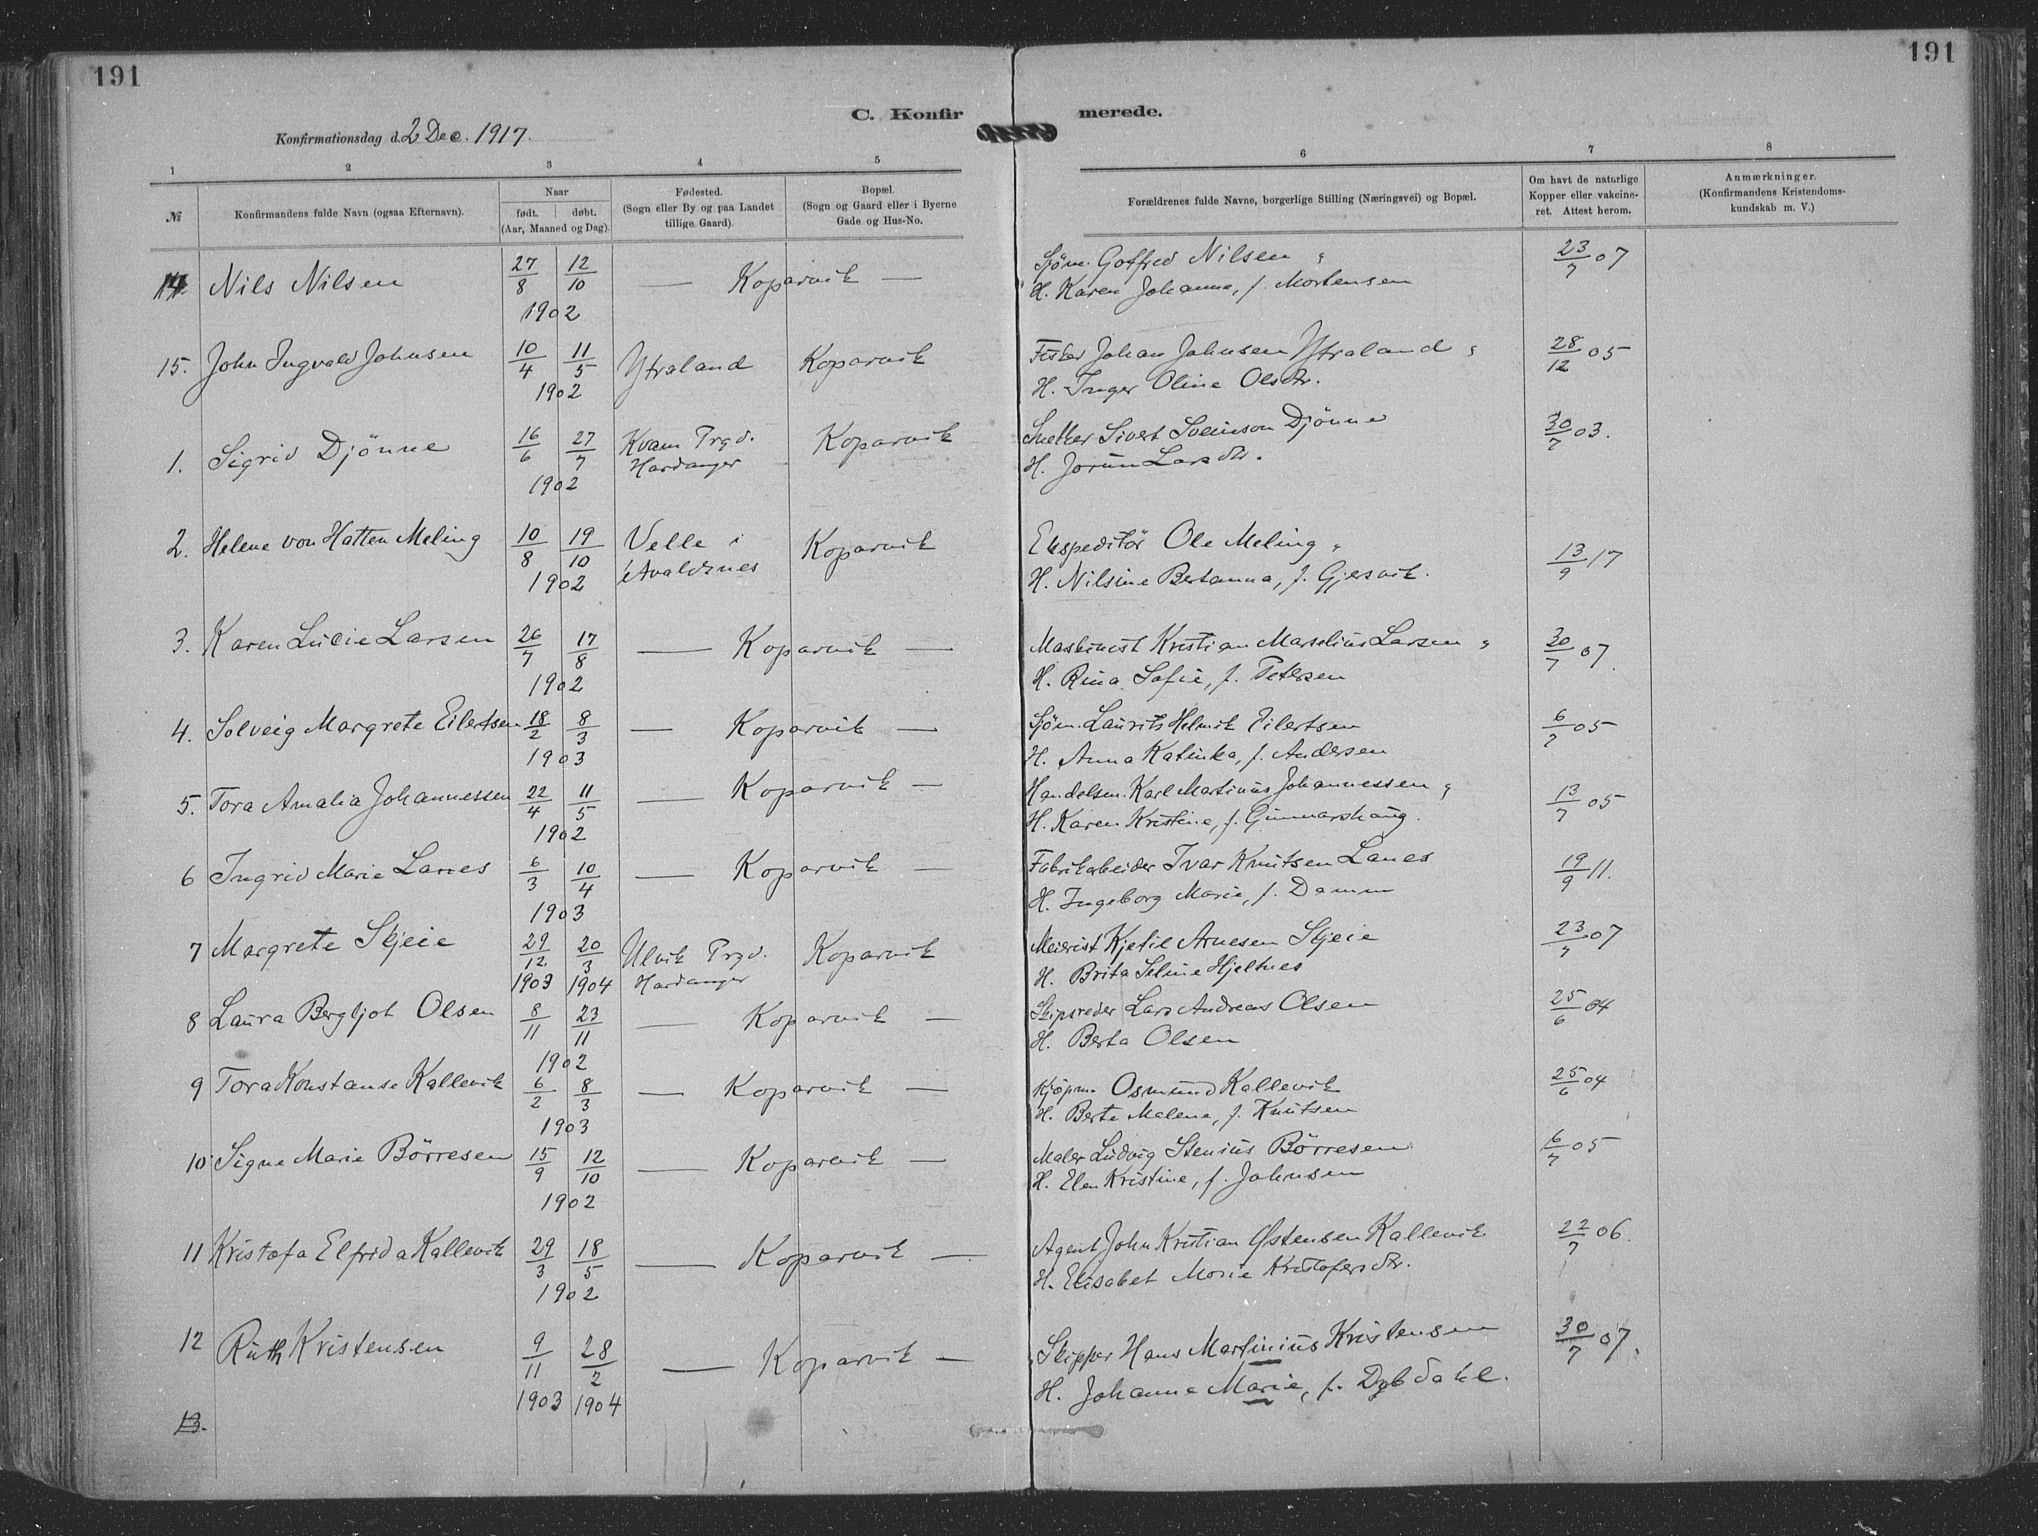 191
191
C. Konfirmerede.
Konfirmationsdag d. 2 Dec. 1917.
1 2 3 4 5 6 7 8
№
Konfirmandens fulde Navn (ogsaa Efternavn).
Naar
født. døbt.
(Aar, Maaned og Dag).
Fødested.
(Sogn eller By og paa Landet
tillige Gaard).
Bopæl.
(Sogn og Gaard eller i Byerne
Gade og Hus-No.
Forældrenes fulde Navne, borgerlige Stilling (Næringsvei) og Bopæl.
Om havt de naturlige
Kopper eller vakcine-
ret. Attest herom.
Anmærkninger.
(Konfirmandens Kristendoms-
kundskab m. V.)
14. Nils Nilsen 27/8 12/10 — Koparvik — Sjøm. Gotfred Nilsen 23/7 07
1902 H. Karen Johanne, f. Mortensen
15. John Ingvald Johnsen 10/4 11/5 Ytraland Koparvik Fisker Johan Johnsen Ytraland 28/12 05
1902 H. Inger Oline Olsdr.
1. Sigrid Djönne 16/6 27/7 Kvam Prgd. Koparvik Snekker Sivert Sveinson Djönne 30/7 03.
1902 Hardanger H. Jorun Larsdr.
2. Helene von Hatten Meling 10/8 19/10 Velle i Koparvik Ekspeditör Ole Meling 13/9 17
1902 Avaldsnes H. Nilsine Bertanna, f. Gjersvik.
3. Karen Lucie Larsen 26/7 17/8 — Koparvik — Maskinist Kristian Marselius Larsen 30/7 07.
1902 H. Rina Sofie, f. Petersen
4. Solveig Margrete Eilertsen 18/2 8/3 — Koparvik — Sjöm. Laurits Helmik Eilertsen 6/7 05
1903 H. Anna Katinka, f. Andersen
5. Tora Amalia Johannessen 22/4 11/5 — Koparvik — Handelsm. Karl Martinus Johannessen 13/7 05
1902 H. Karen Kristine, f. Gunnarshaug.
6 Ingrid Marie Lanes 6/3 10/4 — Koparvik — Fabrikarbeider Ivar Knutsen Lanes 19/9 11.
1903 H. Ingeborg Marie, f. Damm
7 Margrete Skjeie 29/12 20/3 Ulvik Prgd. Koparvik Meierist Kjetil Arnesen Skjeie 23/7 07
1903 1904 Hardanger H. Brita Selme Hjeltnes
8 Laura Bergljot Olsen 8/11 23/11 — Koparvik — Skipsreder Lars Andreas Olsen 25/6 04
1902 H. Berta Olsen
9 Tora Konstanse Kallevik 6/2 8/3 — Koparvik — Kjöpm. Osmund Kallevik 25/6 04
1903 H. Berte Malene, f. Knutsen
10 Signe Marie Börresen 15/9 12/10 — Koparvik — Maler Ludvig Stenius Börresen 6/7 05
1902 H. Elen Kristine, f. Johnsen
11 Kristofa Elfrida Kallevik 29/3 18/5 — Koparvik — Agent John Kristian Østensen Kallevik 22/7 06.
1902 H. Elisabet Marie Kristofersdr.
12 Ruth Kristensen 9/11 28/2 — Koparvik — Skipper Hans Martinius Kristensen 30/7 07.
1903 1904 H. Johanne Marie, f. Dybdahl.
13.